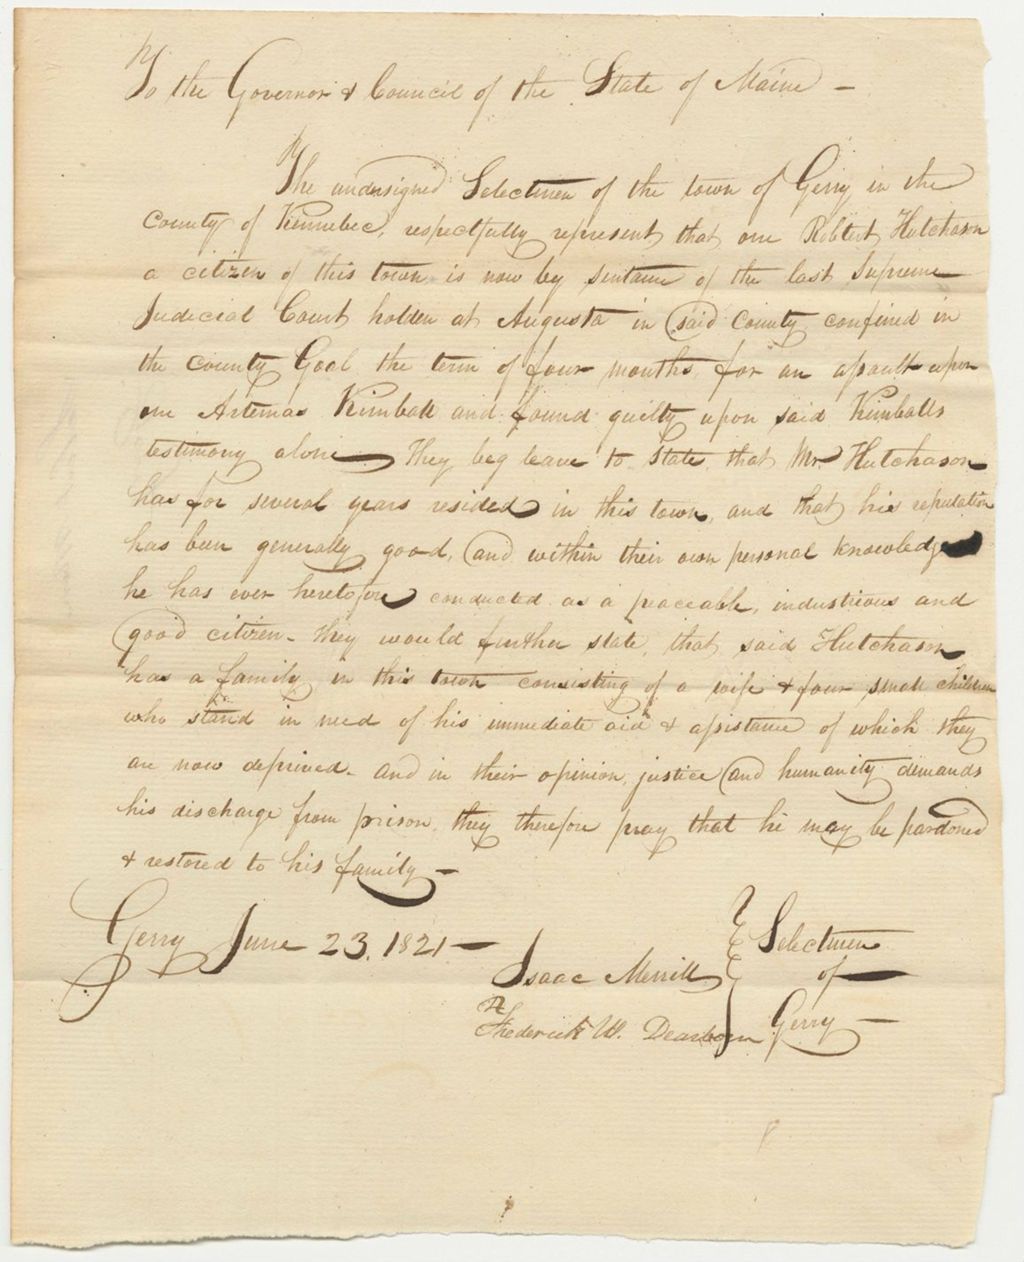 To the Governor & Council of the State of Maine -
The undersigned Selectmen of the town of Gerry in the
County of Kennebec, respectfully represent, that one Robtert Hutchason
a citizen of this town is now by sentance of the last Supreme
Judicial Court holden at Augusta in said County confined in
the County Goal the term of four months, for an assault upon
one Artemas Kimball and found guilty upon said Kimballs
testimony alone They beg leave to State, that Mr Hutchason
has for several years resided in this town, and that his reputation
has been generally good, and within their own personal knowledge
he has ever heretofore conducted as a peaceable, industrious and
good citizen - They would further state, that said Hutchason
has a family in this town consisting of a wife & four small children
who stand in need of his immediate aid & assistance of which they
are now deprived - and in their opinion, justice and humanity demands
his discharge from prison, they therefore pray that he may be pardoned
& restored to his family -
Gerry June 23, 1821 -
Isaac Merrill
Frederick W. Dearborn
Selectmen
of
Gerry -